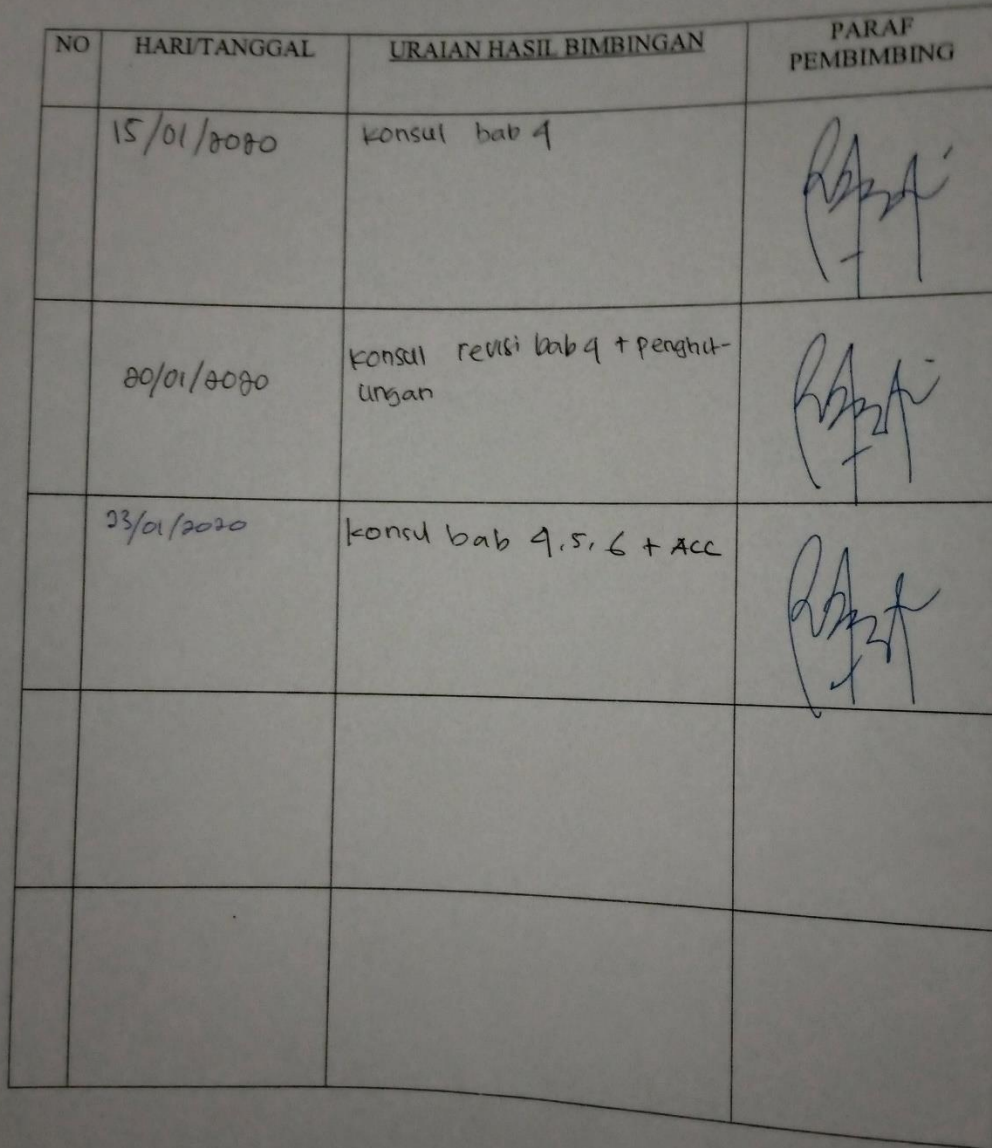 NO HARI/TANGGAL URAIAN HASIL BIMBINGAN PARAF
PEMBIMBING
15/01/2020 konsul bab 4
20/01/2020 konsul revisi bab 4 + penghit-
ungan
23/01/2020 konsul bab 4, 5, 6 + ACC